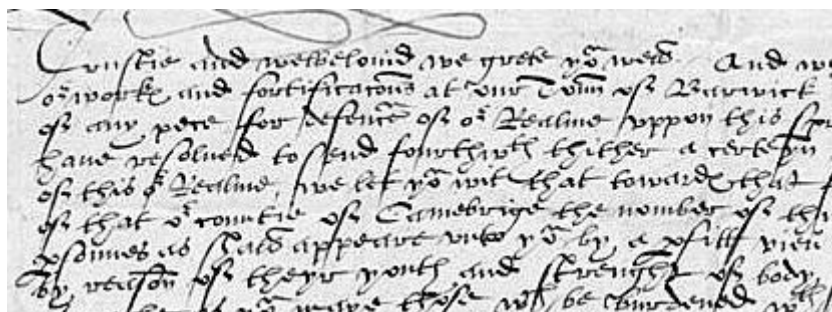 Trustie and welbelovid we grete yo^u well. And w
o^r work and fortificacons at our Town of Barwick
of any pece for defence of o^r Realme uppon this
have resolved to send fourthw^th thither a certeyn
of this o^r Realme, we let yo^u wit that toward that
of that o^r countie of Cambrige the nomber of thi
psonnes as shall appeare unto yo^u by a pfitt view
by reason of theyr youth and strenght of body
yo^u leave those w^ch be burdened w^th